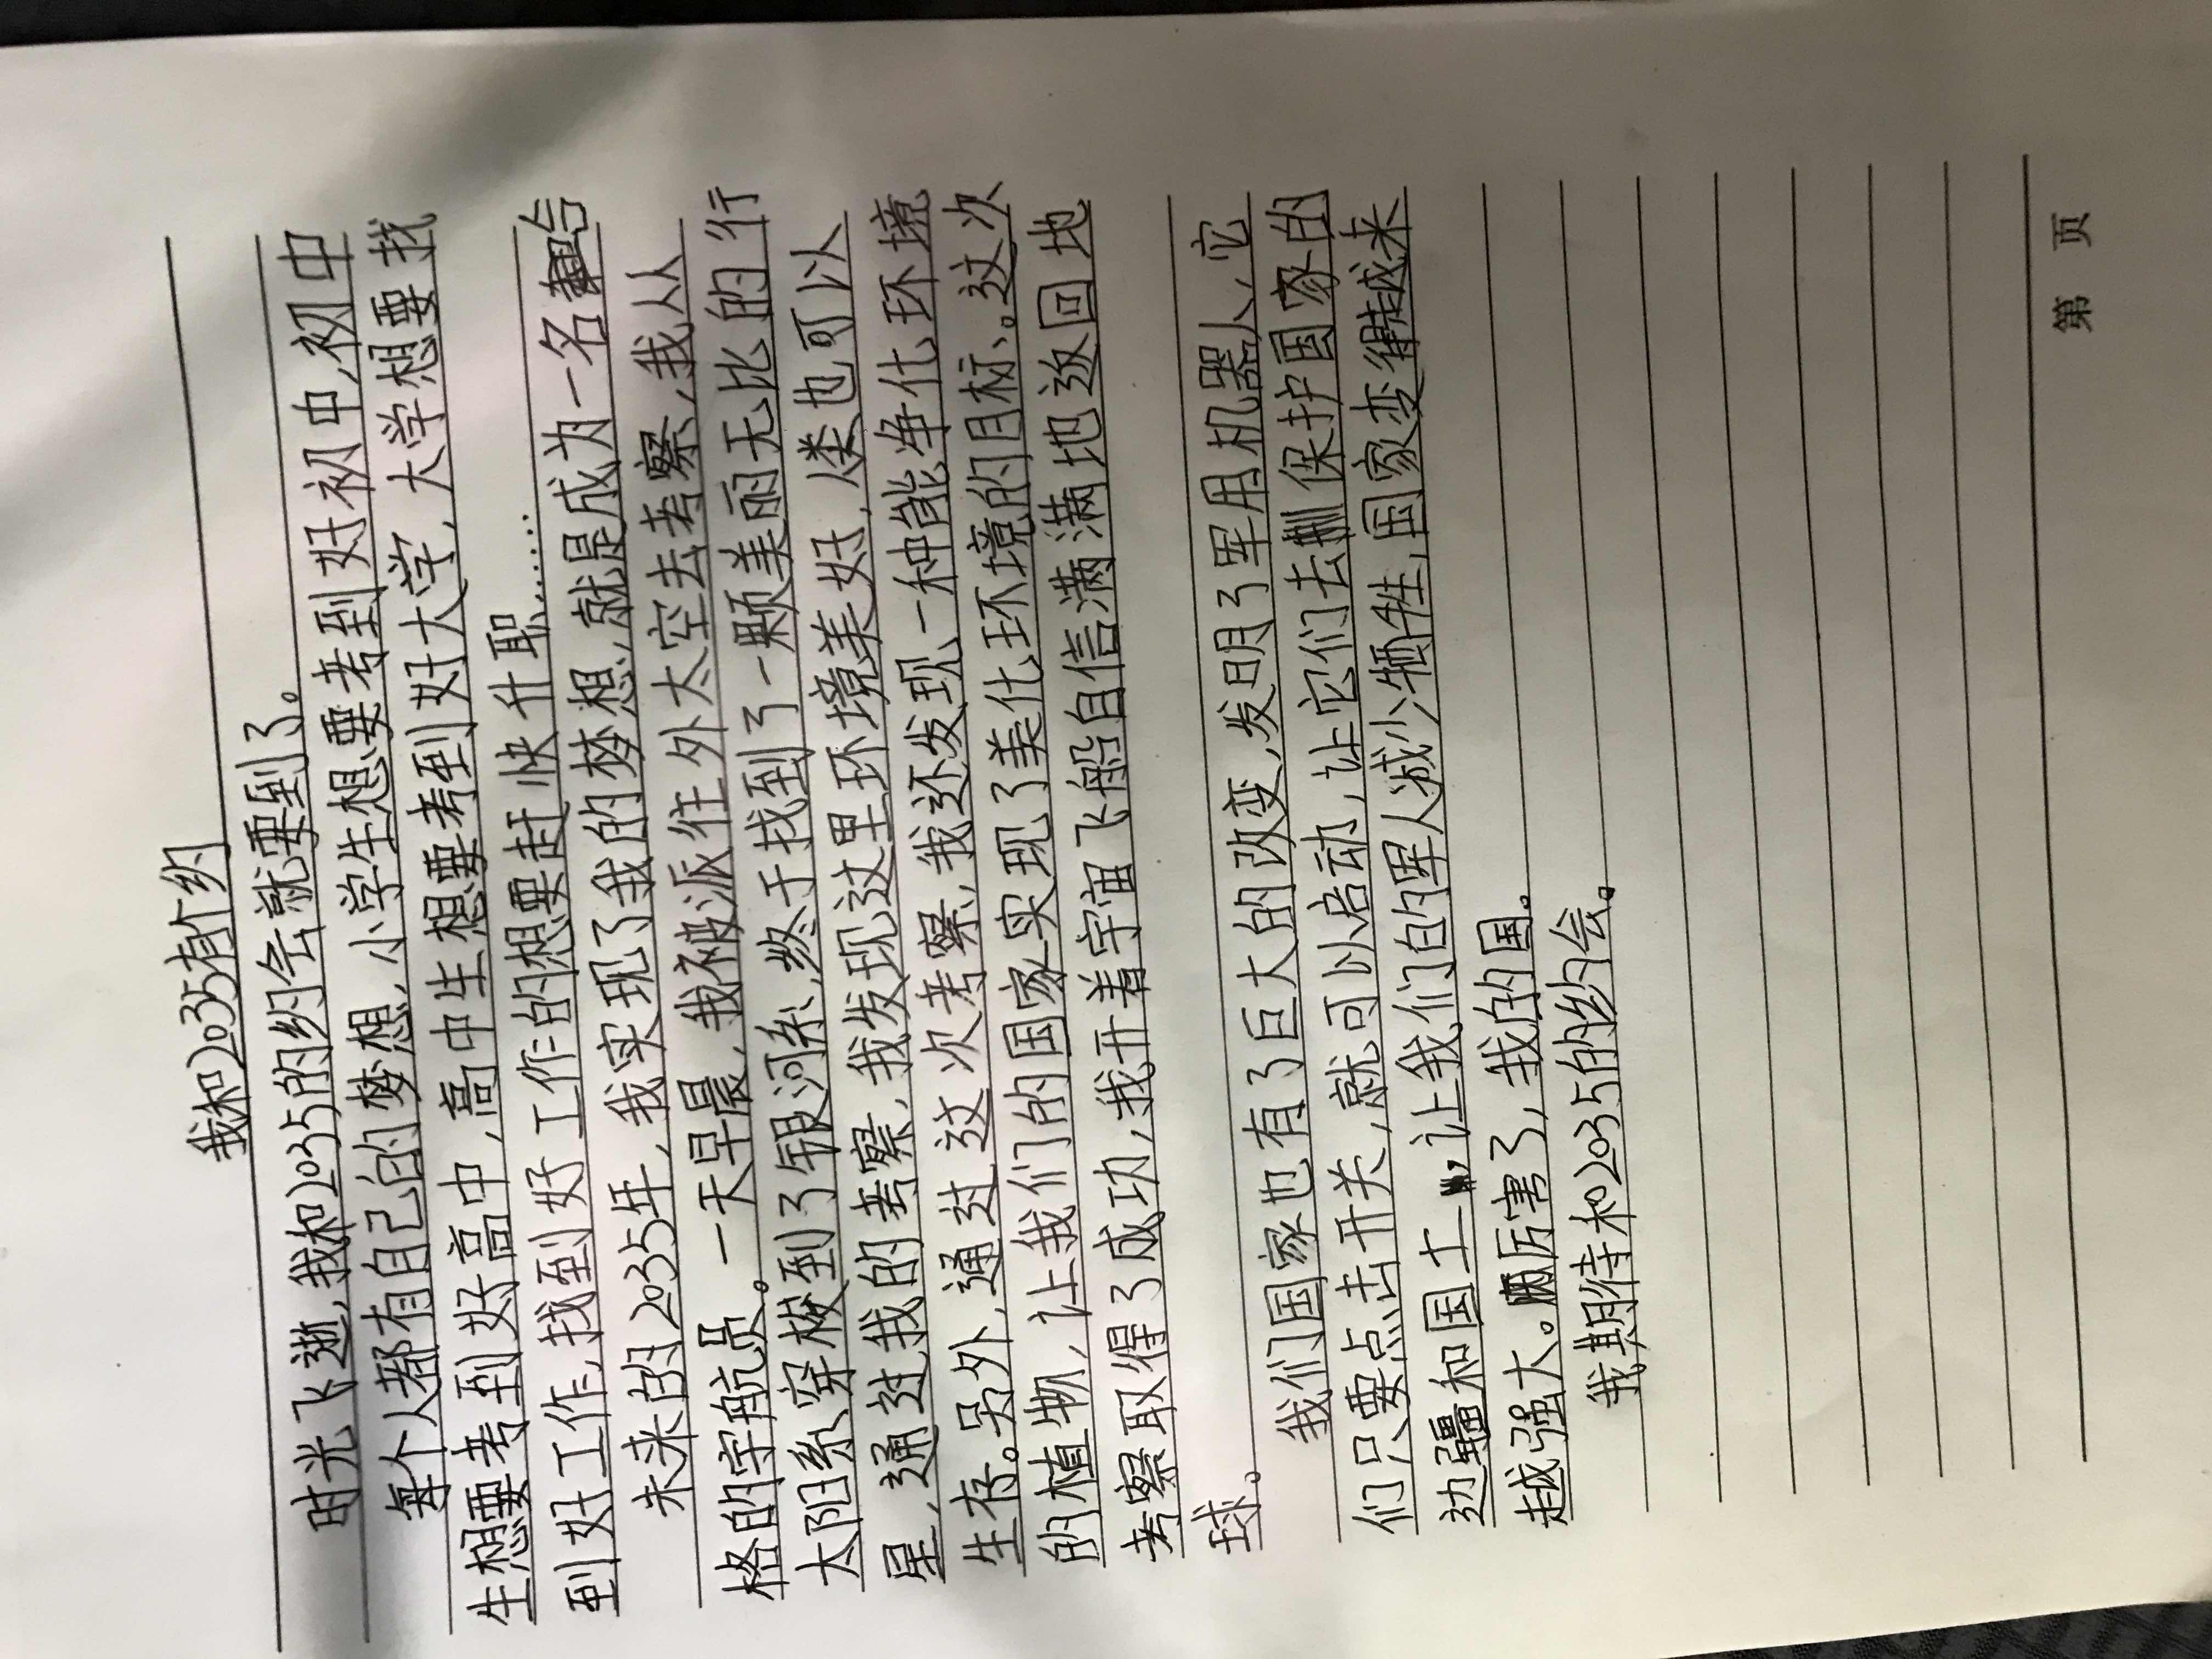 我和2035有个约
时光飞逝,我和2035的约会就要到了。
每个人都有自己的梦想,小学生想要考到好初中,初中
生想要考到好高中,高中生想要考到好大学,大学想要找
到好工作,找到好工作的想要赶快升职……
未来的2035年,我实现了我的梦想,就是成为一名合
格的宇航员。一天早晨,我被派往外太空去考察,我从
太阳系穿梭到了银河系,终于找到了一颗美丽无比的行
星,通过我的考察,我发现这里环境美好,人类也可以
生存。另外,通过这次考察,我还发现一种能净化环境
的植物,让我们的国家实现了美化环境的目标。这次
考察取得了成功,我开着宇宙飞船自信满满地返回地
球。
我们国家也有了巨大的改变,发明了军用机器人,它
们只要点击开关,就可以启动,让它们去保护国家的
边疆和国土,让我们的军人减少牺牲,国家变得越来
越强大。厉害了,我的国。
我期待和2035的约会。
第 页